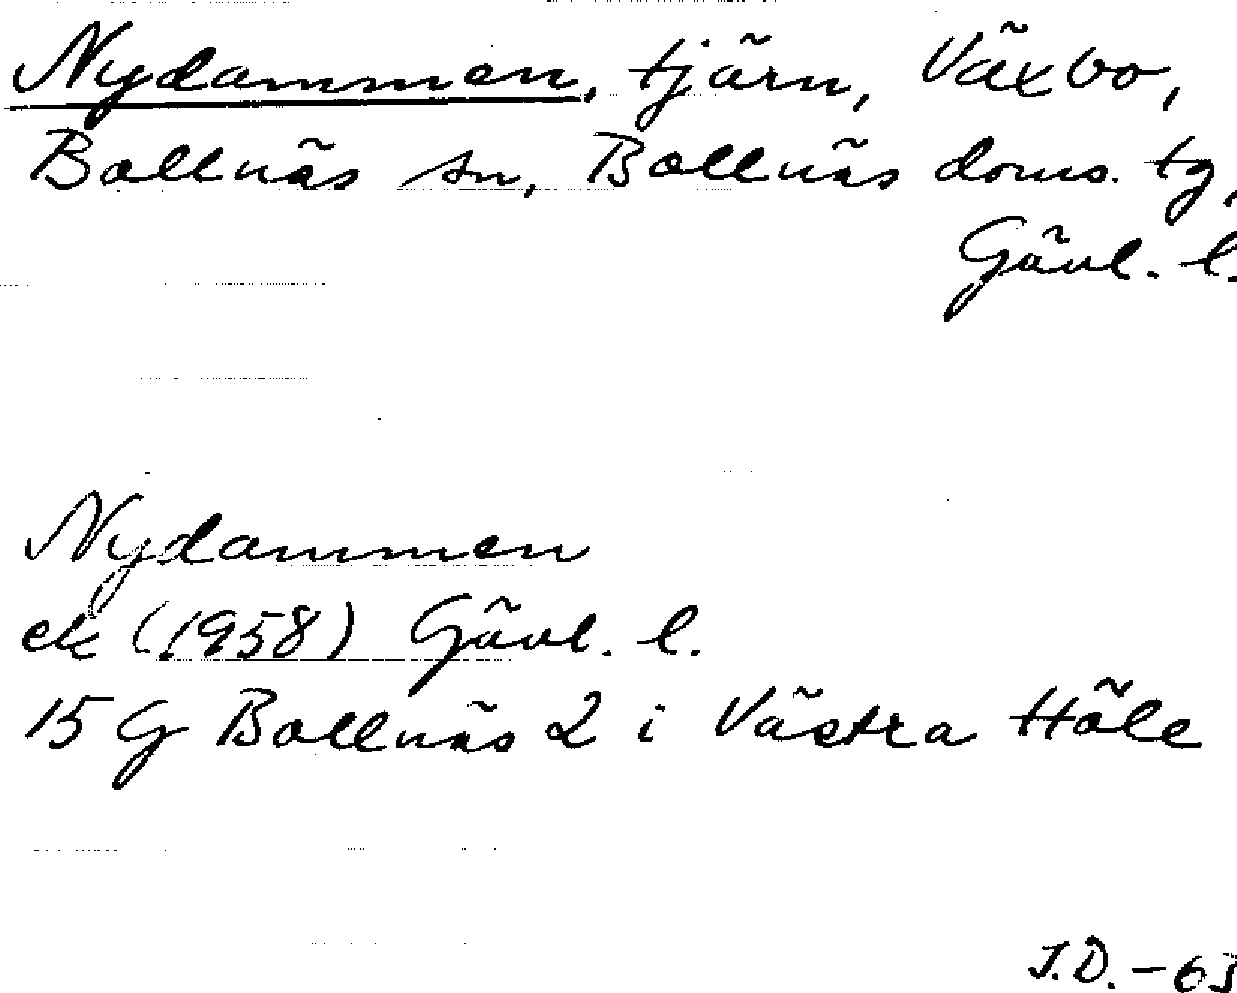 Nydammen, tjärn, Växbo,
Bollnäs sn, Bollnäs doms. tg,
Gävl. l.
Nydammen
ek (1958) Gävl. l.
15 G Bollnäs 2 i Västra Höle
J.D. - 63